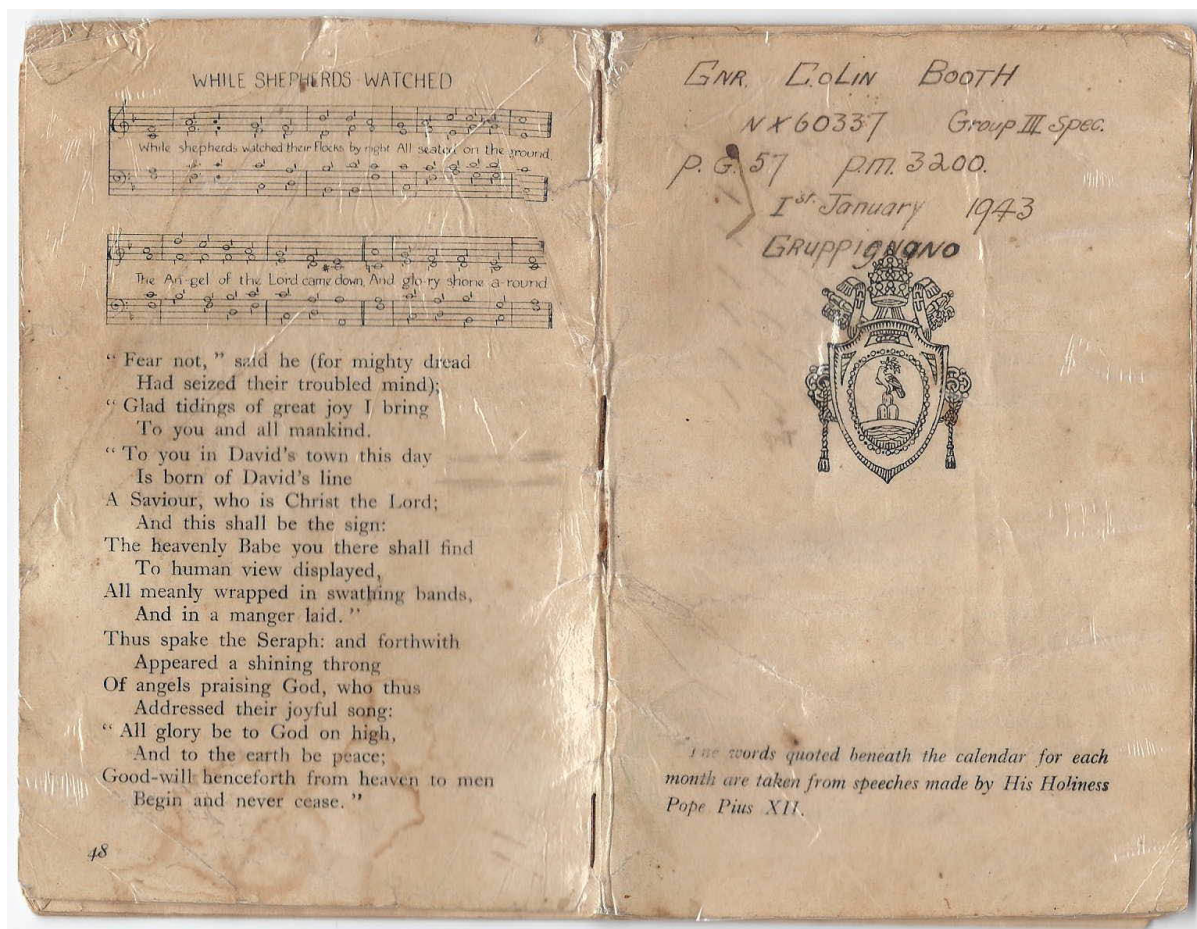 WHILE SHEPHERDS WATCHED
While shepherds watched their flocks by night All seated on the ground
The An-gel of the Lord came down And glo-ry shone a-round
“ Fear not, ” said he (for mighty dread
Had seized their troubled mind);
“ Glad tidings of great joy I bring
To you and all mankind.
“ To you in David's town this day
Is born of David's line
A Saviour, who is Christ the Lord;
And this shall be the sign:
The heavenly Babe you there shall find
To human view displayed,
All meanly wrapped in swathing bands,
And in a manger laid. ”
Thus spake the Seraph: and forthwith
Appeared a shining throng
Of angels praising God, who thus
Addressed their joyful song:
“ All glory be to God on high,
And to the earth be peace;
Good-will henceforth from heaven to men
Begin and never cease. ”
48
GNR. COLIN BOOTH
NX60337 Group III Spec.
P. G. 57 P.M. 3200.
1st January 1943
GRUPPIGNANO
The words quoted beneath the calendar for each
month are taken from speeches made by His Holiness
Pope Pius XII.